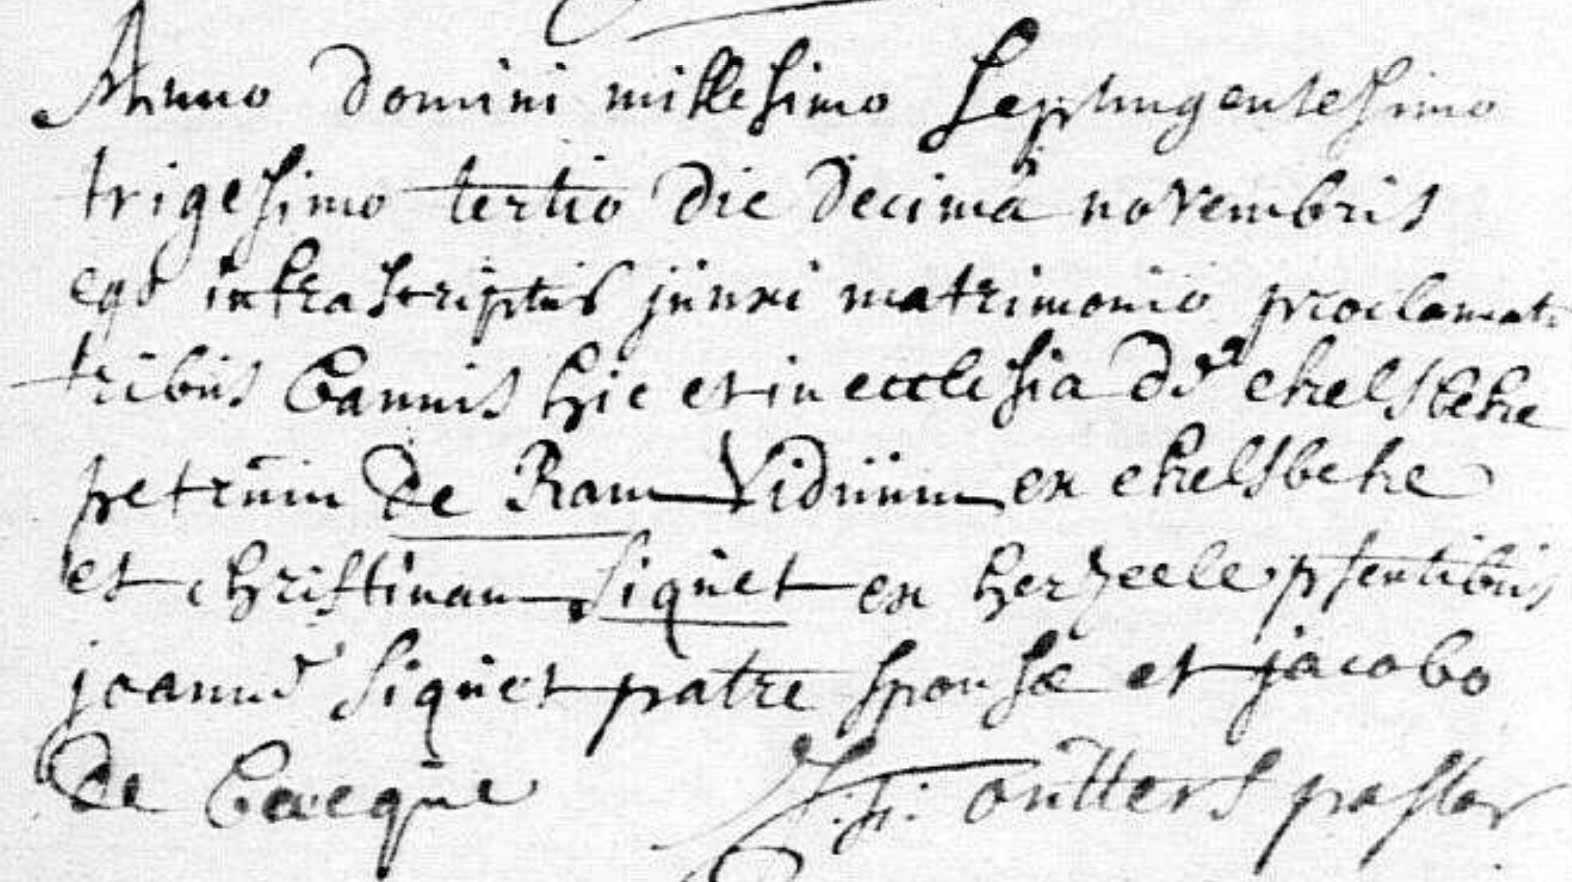 Anno domini millesimo septungentesimo
trigesimo tertio die decimâ novembris
ego infrascriptus junxi matrimonio proclamat:
tribus bannis hic et in ecclesia de ekelsbeke
petrum de Ram Viduum ex ekelsbeke
et christinam siquet ex herzeele psentibus
joanne siquet patre sponsæ et jacobo
de Cacque J: F: outters pastor